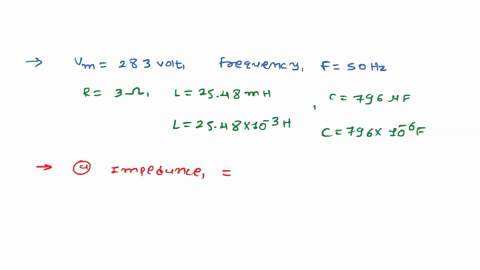 → Vm = 283 volt, frequency, F = 50 Hz
R = 3 Ω, L = 25.48 mH, C = 796 μF
L = 25.48 × 10⁻³ H C = 796 × 10⁻⁶ F
→ (a) Impedance, =